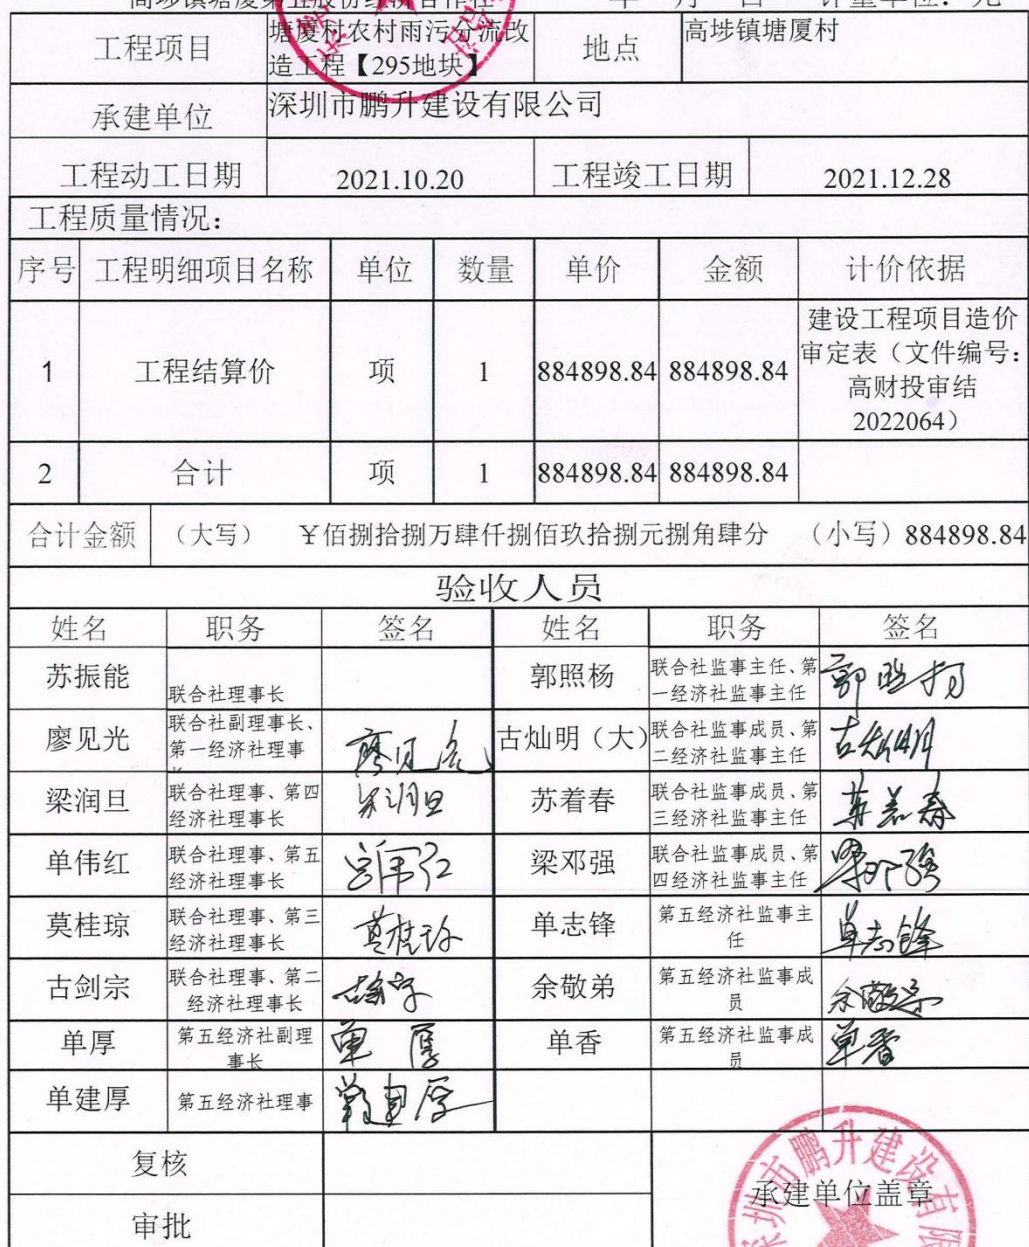 高埗镇塘厦第五股份经济合作社 年 月 日 计量单位：元
工程项目 塘厦村农村雨污分流改
造工程【295地块】 地点 高埗镇塘厦村
承建单位 深圳市鹏升建设有限公司
工程动工日期 2021.10.20 工程竣工日期 2021.12.28
工程质量情况：
序号 工程明细项目名称 单位 数量 单价 金额 计价依据
1 工程结算价 项 1 884898.84 884898.84 建设工程项目造价
审定表（文件编号：
高财投审结
2022064）
2 合计 项 1 884898.84 884898.84
合计金额 （大写） ￥佰捌拾捌万肆仟捌佰玖拾捌元捌角肆分 （小写）884898.84
验收人员
姓名 职务 签名 姓名 职务 签名
苏振能 联合社理事长 郭照杨 联合社监事主任、第
一经济社监事主任 郭照杨
廖见光 联合社副理事长、
第一经济社理事 廖见光 古灿明（大） 联合社监事成员、第
二经济社监事主任 古灿明
梁润旦 联合社理事、第四
经济社理事长 梁润旦 苏着春 联合社监事成员、第
三经济社监事主任 苏着春
单伟红 联合社理事、第五
经济社理事长 单伟红 梁邓强 联合社监事成员、第
四经济社监事主任 梁邓强
莫桂琼 联合社理事、第三
经济社理事长 莫桂琼 单志锋 第五经济社监事主
任 单志锋
古剑宗 联合社理事、第二
经济社理事长 古剑宗 余敬弟 第五经济社监事成
员 余敬弟
单厚 第五经济社副理
事长 单厚 单香 第五经济社监事成
员 单香
单建厚 第五经济社理事 单建厚
复核
承建单位盖章
审批
深圳市鹏升建设有限